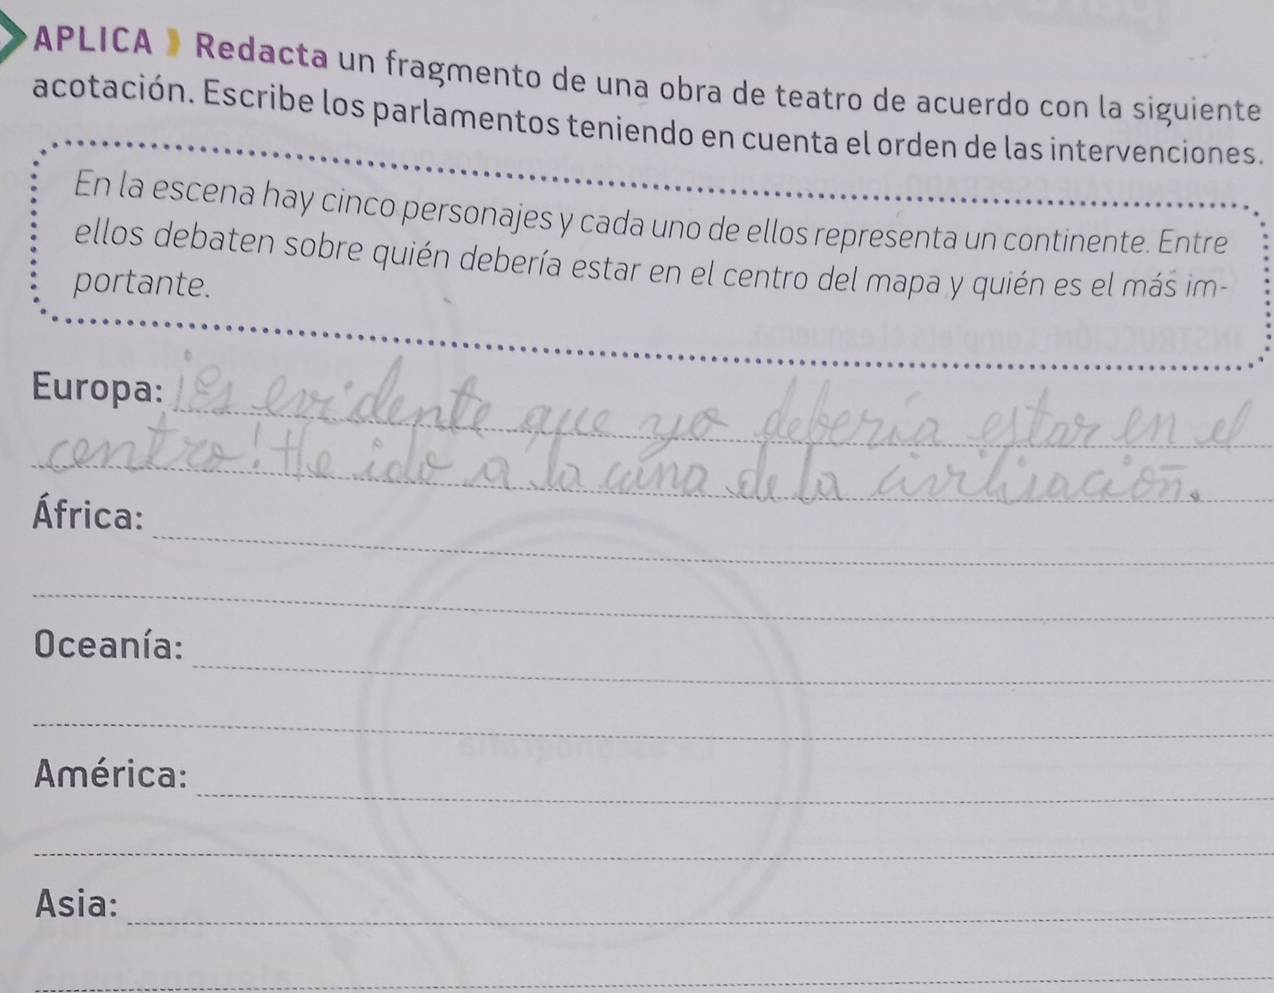 APLICA » Redacta un fragmento de una obra de teatro de acuerdo con la siguiente
acotación. Escribe los parlamentos teniendo en cuenta el orden de las intervenciones.
En la escena hay cinco personajes y cada uno de ellos representa un continente. Entre
ellos debaten sobre quién debería estar en el centro del mapa y quién es el más im-
portante.
Europa: ¡es evidente que yo debería estar en el
centro! He ido a la cuna de la civiliación.
África:
Oceanía:
América:
Asia: